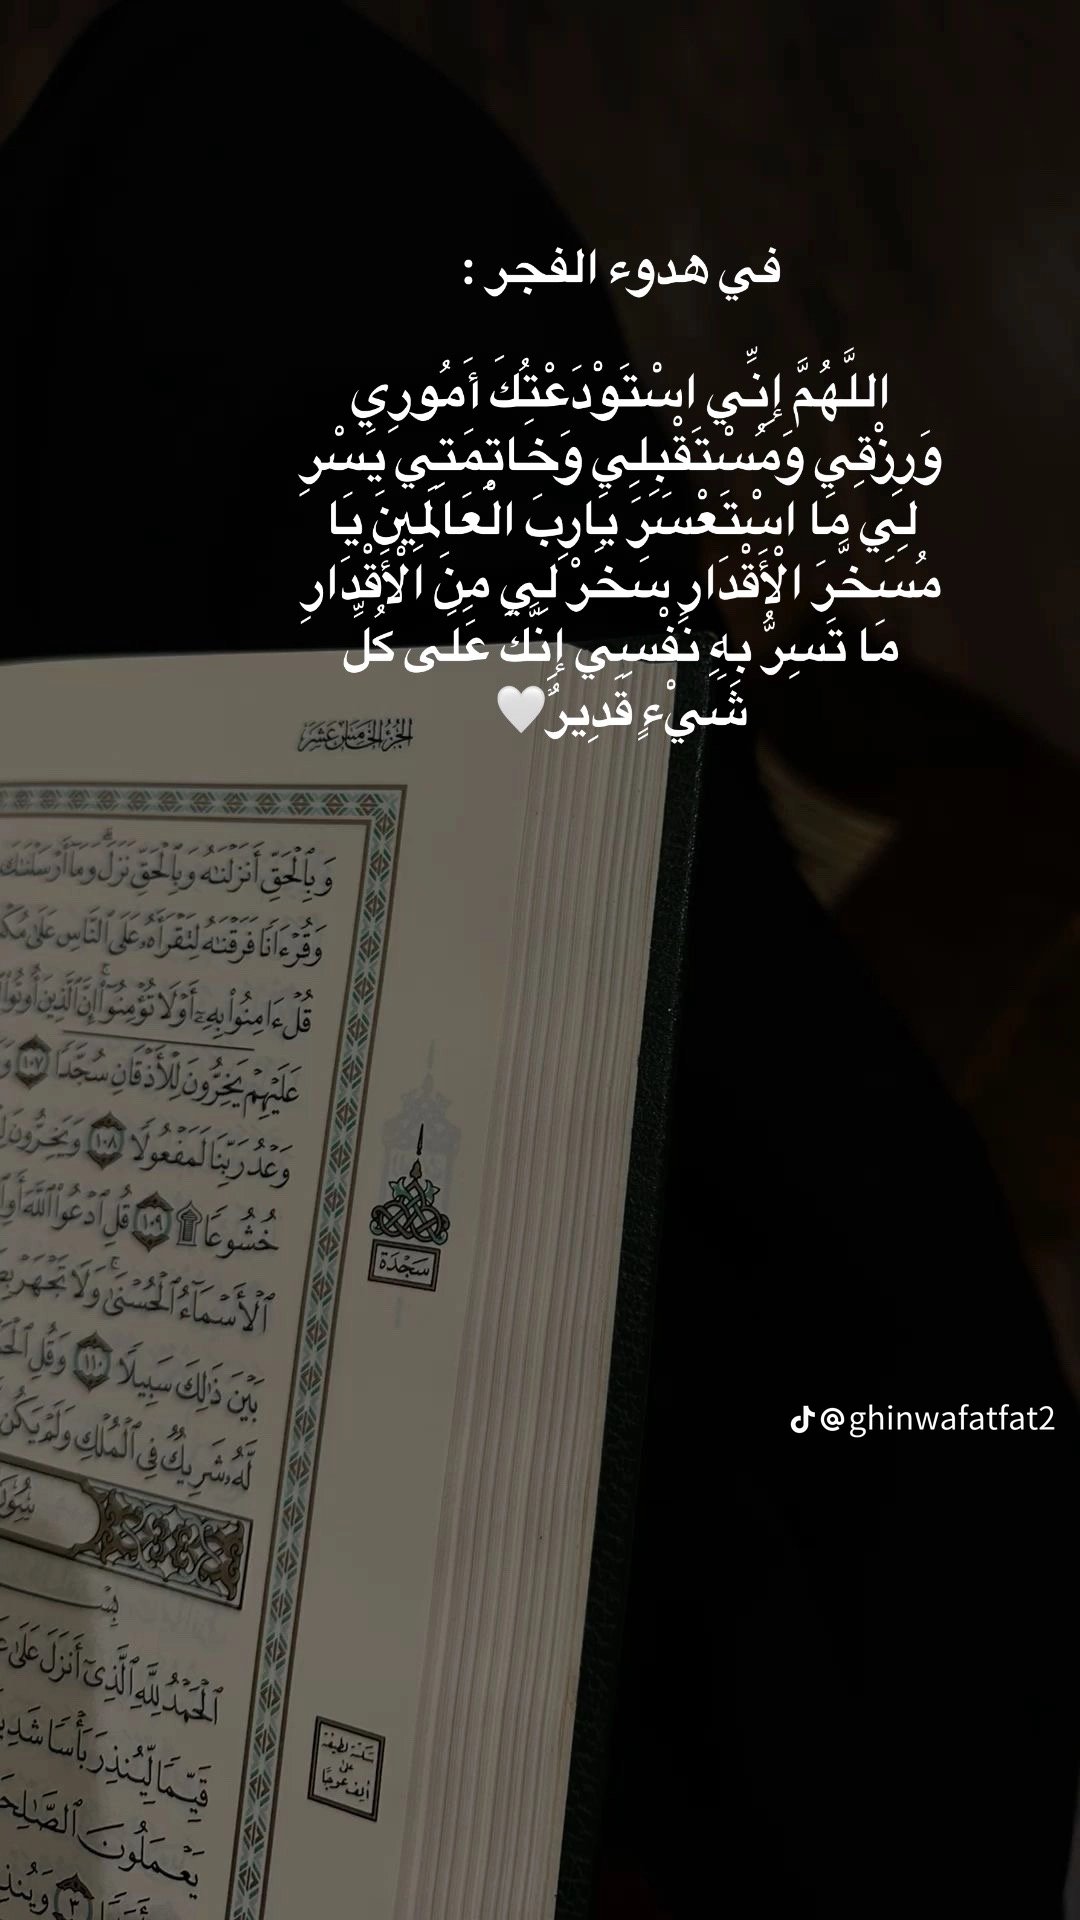 في هدوء الفجر :
اللَّهُمَّ إِنِّي اسْتَوْدَعْتُكَ أَمُورِي
وَرِزْقِي وَمُسْتَقْبِلِي وَخَاتِمَتِي يَسْرِ
لِي مَا اسْتَعْسَرَ يَارِبَ الْعَالَمِينَ يَا
مُسَخَّرَ الْأَقْدَارِ سَخرْ لِي مِنَ الْأَقْدَارِ
مَا تَسِرُّ بِهِ نَفْسِي إِنَّكَ عَلَى كُلِّ
شَيْءٍ قَدِيرٌ🤍
الجزء الخامس عشر
وَبِٱلْحَقِّ أَنزَلْنَٰهُ وَبِٱلْحَقِّ نَزَلَ وَمَآ أَرْسَلْنَٰكَ
وَقُرْءَانًا فَرَقْنَٰهُ لِتَقْرَأَهُۥ عَلَى ٱلنَّاسِ عَلَىٰ
قُلْ ءَامِنُوا۟ بِهِۦٓ أَوْ لَا تُؤْمِنُوٓا۟ إِنَّ ٱلَّذِينَ أُوتُوا۟
عَلَيْهِمْ يَخِرُّونَ لِلْأَذْقَانِ سُجَّدًا ١٠٧
وَعْدُ رَبِّنَا لَمَفْعُولًا ١٠٨ وَيَخِرُّونَ
خُشُوعًا ۩ ١٠٩ قُلِ ٱدْعُوا۟ ٱللَّهَ أَوِ
سَجْدَة
ٱلْأَسْمَآءُ ٱلْحُسْنَىٰ وَلَا تَجْهَرْ
بَيْنَ ذَٰلِكَ سَبِيلًا ١١٠ وَقُلِ
لَّهُۥ شَرِيكٌ فِى ٱلْمُلْكِ وَلَمْ يَكُن
@ghinwafatfat2
ٱلْحَمْدُ لِلَّهِ ٱلَّذِىٓ أَنزَلَ عَلَىٰ
قَيِّمًا لِّيُنذِرَ بَأْسًا شَدِ
سكتة لطيفة
على
ألف عوجا
يَعْمَلُونَ
٣